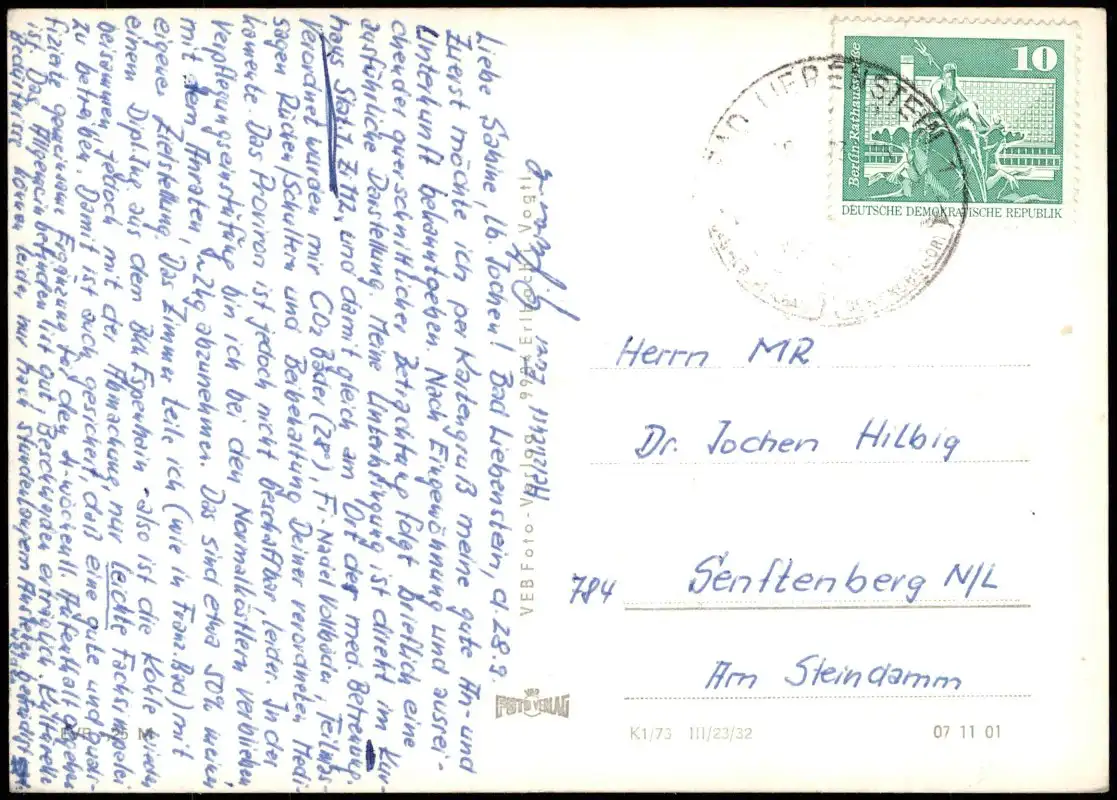 Liebe Sabine, lb. Jochen! Bad Liebenstein, d. 28.9.
Zuerst möchte ich per Kartengruß meine gute An- und
Unterkunft bekanntgeben. Nach Eingewöhnung und ausrei-
chender querschnittlicher Betrachtung folgt brieflich eine
ausführliche Darstellung. Meine Unterbringung ist direkt im Kur-
haus Stat. Zi 72, und damit gleich am Ort der med. Betreuung.
Verordnet wurden mir CO2 Bäder (28°), Fi-Nadel Vollbäder, Teilmas-
sagen Rücken/Schultern und Beibehaltung Deiner verordneten Medi-
kamente. Das Proviron ist jedoch nicht beschaffbar, leider. In der
Verpflegungseinstufung bin ich bei den Normalköstlern verblieben
mit dem Anraten, ~2kg abzunehmen. Das sind etwa 50% meiner
eigenen Zielstellung. Das Zimmer teile ich (wie in Franz. Bad) mit
einem Dipl. Ing. aus dem BKK Espenhain - also ist die Kohle wieder
beisammen, jedoch mit der Abmachung, nur leichte Fachsimpelei
zu betreiben. Damit ist auch gesichert, daß eine gute und quali-
fizierte gemeinsame Ergänzung für den 4-wöchentl. Aufenthalt gegeben
ist. Das Allgemeinbefinden ist gut, Beschwerden erträglich. Kulturelle
Bedürfnisse können leider nur nach stundenlangem Anstehen befriedigt
werden.
Herzlichst Euer
VEB Foto-Verlag · 99 34 Erlbach i. Vogtl.
EVP -,25 M
VEB
FOTO VERLAG
10
Berlin·Rathausstraße
DEUTSCHE DEMOKRATISCHE REPUBLIK
BAD LIEBENSTEIN 1
Herrn MR
Dr. Jochen Hilbig
784 Senftenberg N/L
Am Steindamm
K1/73 III/23/32
07 11 01